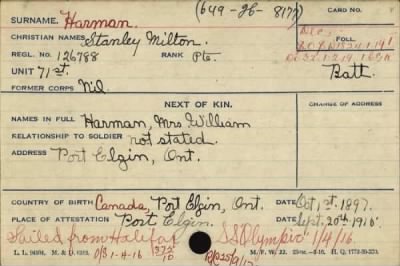 (649-H-8177)
CARD NO.
SURNAME. Harman.
CHRISTIAN NAMES Stanley Milton.
FOLL.
REGL. NO. 126788 RANK Pte.
UNIT 71st. Batt.
FORMER CORPS Nil
NEXT OF KIN. CHANGE OF ADDRESS
NAMES IN FULL Harman, Mrs William
RELATIONSHIP TO SOLDIER not stated.
ADDRESS Port Elgin, Ont.
COUNTRY OF BIRTH Canada, Port Elgin, Ont. DATE Oct 1st 1897.
PLACE OF ATTESTATION Port Elgin. DATE Sept. 20th 1915.
Sailed from Halifax S.S. Olympic 1/4/16.
O/S 1-4-16
M. F. W. 22